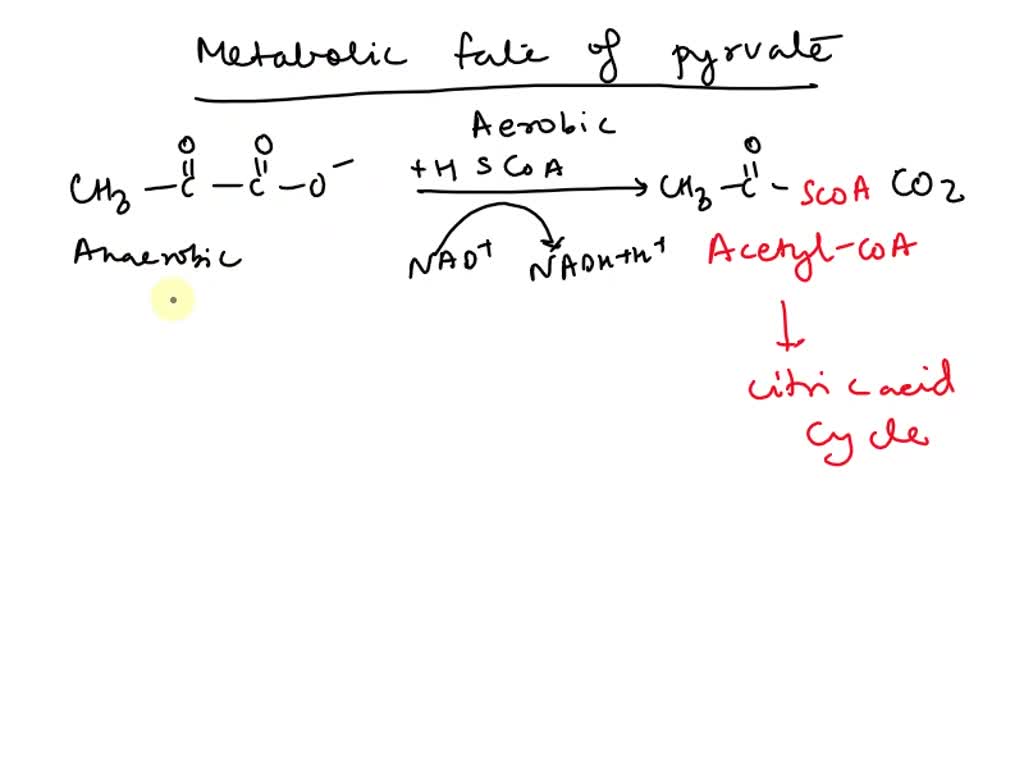 Metabolic fate of pyrvate
Aerobic
O O + H S CoA O
CH3 – C – C – O⁻ → CH3 – C – SCoA CO2
Anaerobic NAD+ NADH+H+ Acetyl-CoA
citric acid
cycle